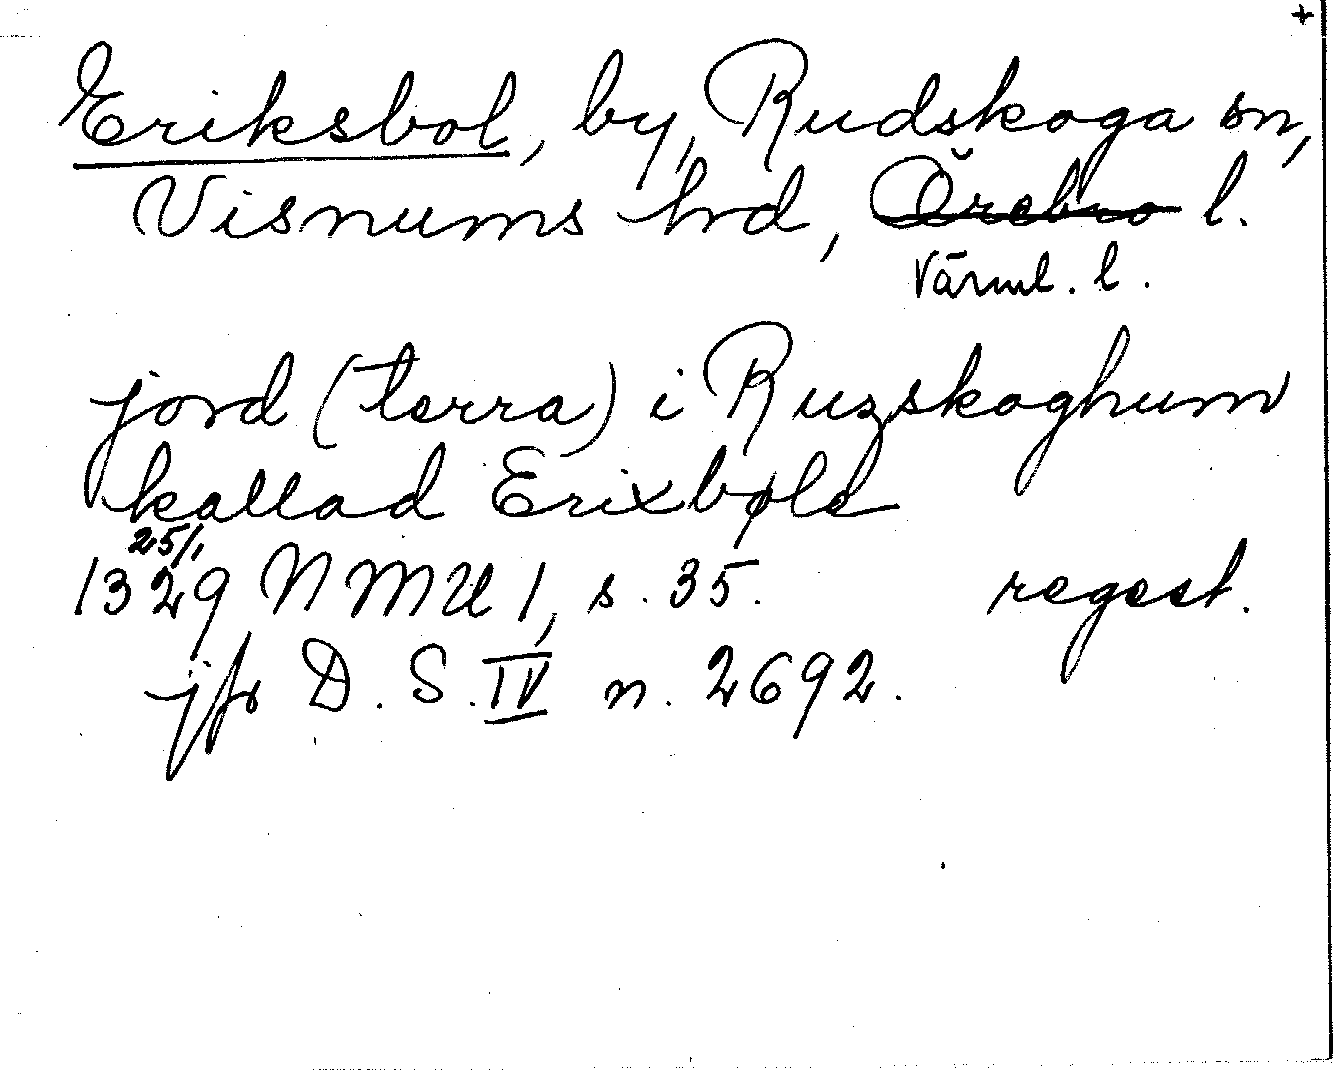 +
Eriksbol, by, Rudskoga sn,
Visnums hrd, Örebro l.
Värml. l.
jord (terra) i Ruzskoghum
kallad Erixbøld
25/1
1329 NMU 1, s. 35. regest.
jfr D. S. IV n. 2692.